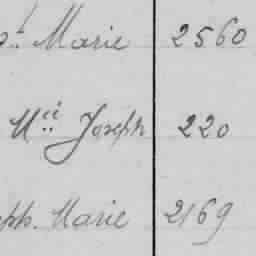 Marie 2560
Joseph 220
Marie 2169